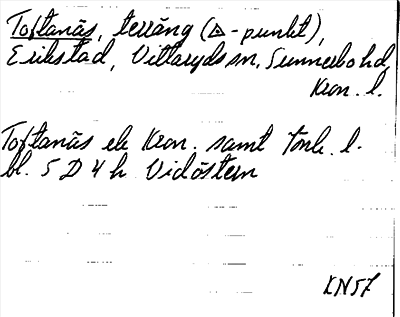 Toftanäs, terräng (△-punkt),
Erikstad, Vittaryds sn, Sunnerbo hd,
Kron. l.
Toftanäs ek Kron. samt Jönk. l.
bl. 5 D 4 h Vidöstern
KN57